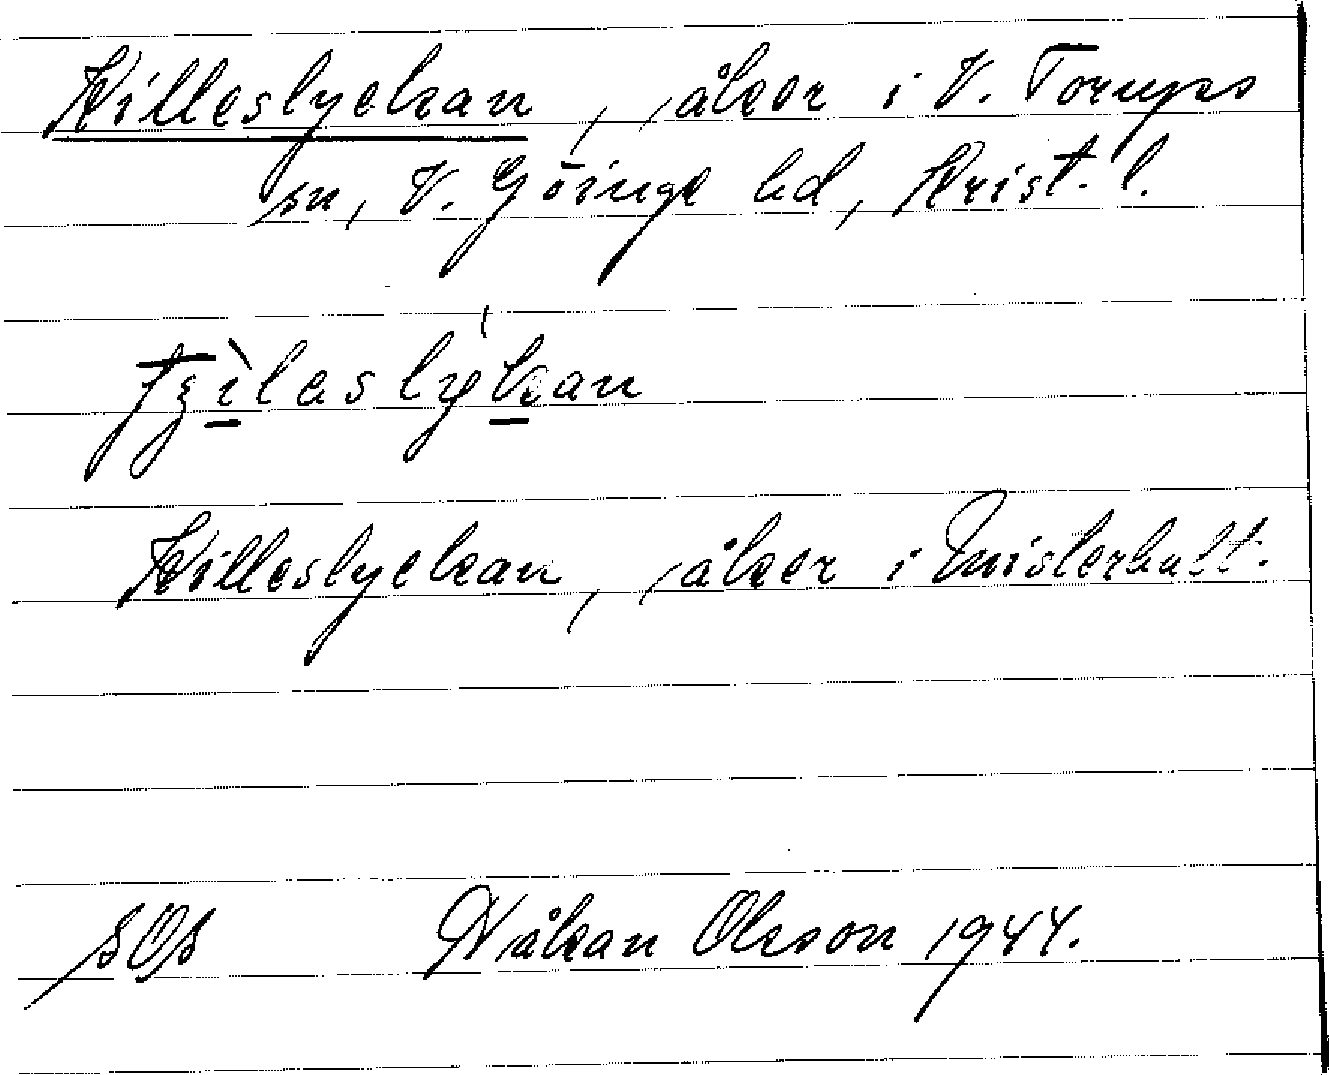 Killeslyckan, åker i V. Torups
sn, V. Göinge hd, Krist. l.
Killeslyckan, åker i
Håkan Olsson 1944.